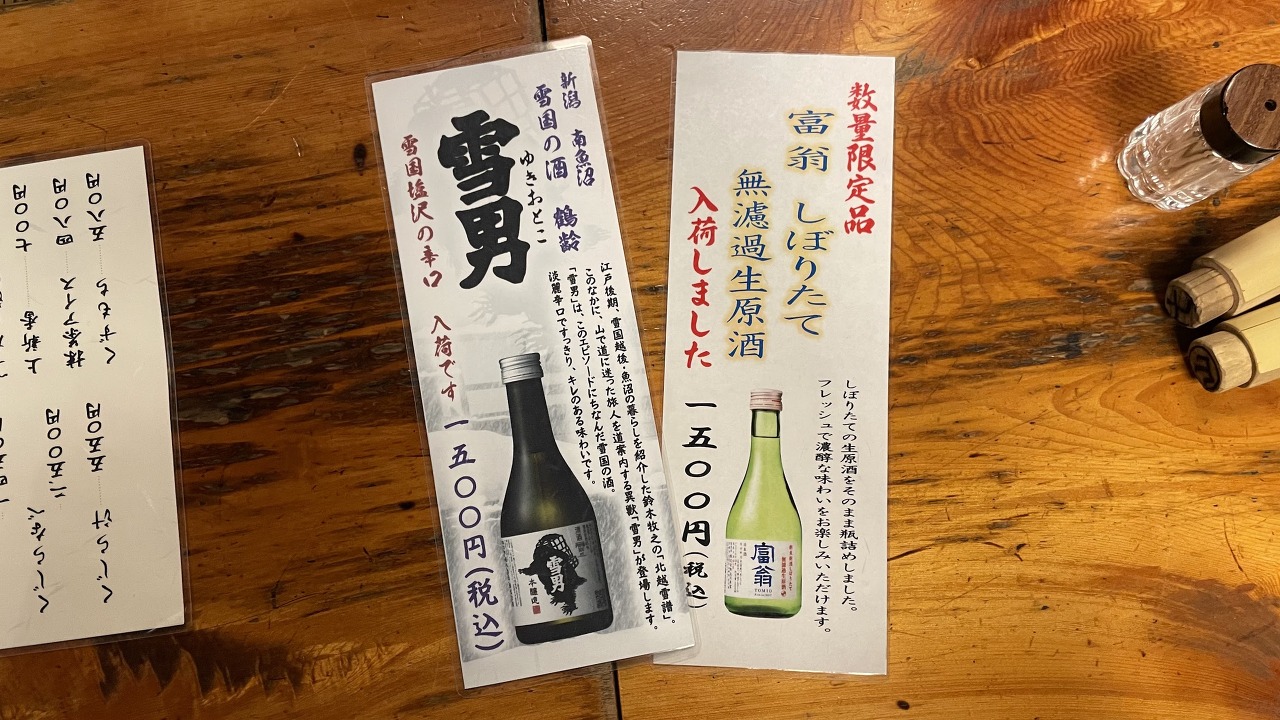 数量限定品
富翁 しぼりたて
無濾過生原酒
入荷しました
しぼりたての生原酒をそのまま瓶詰めしました。
フレッシュで濃醇な味わいをお楽しみいただけます。
一五〇〇円(税込)
富翁
TOMIO
新潟 南魚沼
雪国の酒 鶴齢
ゆきおとこ
雪男
雪国塩沢の辛口 入荷です
江戸後期、雪国越後・魚沼の暮らしを紹介した鈴木牧之の「北越雪譜」。
このなかに、山で道に迷った旅人を道案内する異獣「雪男」が登場します。
「雪男」は、このエピソードにちなんだ雪国の酒。
淡麗辛口ですっきり、キレのある味わいです。
一五〇〇円(税込)
雪男
本醸造
上新香 七〇〇円
抹茶アイス 四八〇円
くずもち 五八〇円
くじらなべ 二、五〇〇円
くじら汁 五五〇円